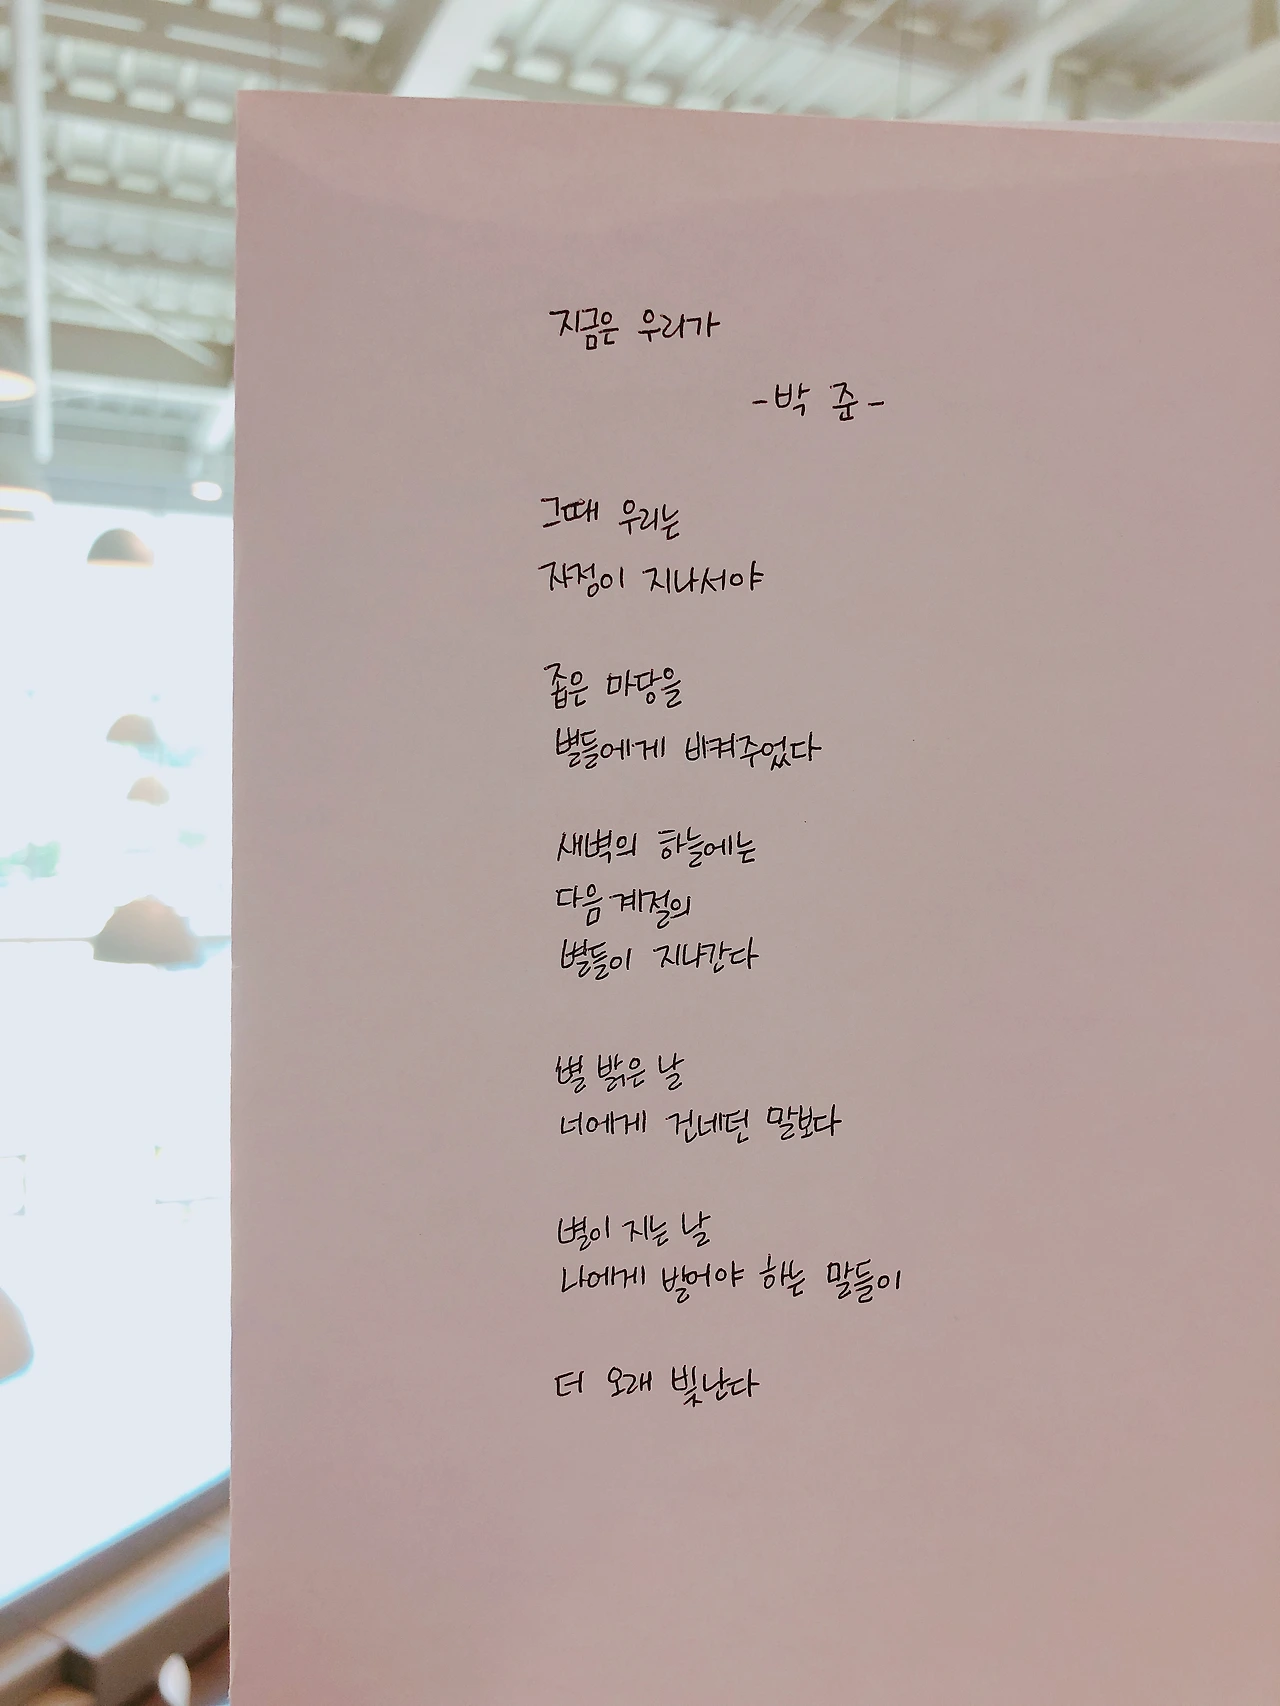 지금은 우리가
-박 준-
그때 우리는
자정이 지나서야
좁은 마당을
별들에게 비켜주었다
새벽의 하늘에는
다음 계절의
별들이 지나간다
별 밝은 날
너에게 건네던 말보다
별이 지는 날
나에게 빌어야 하는 말들이
더 오래 빛난다